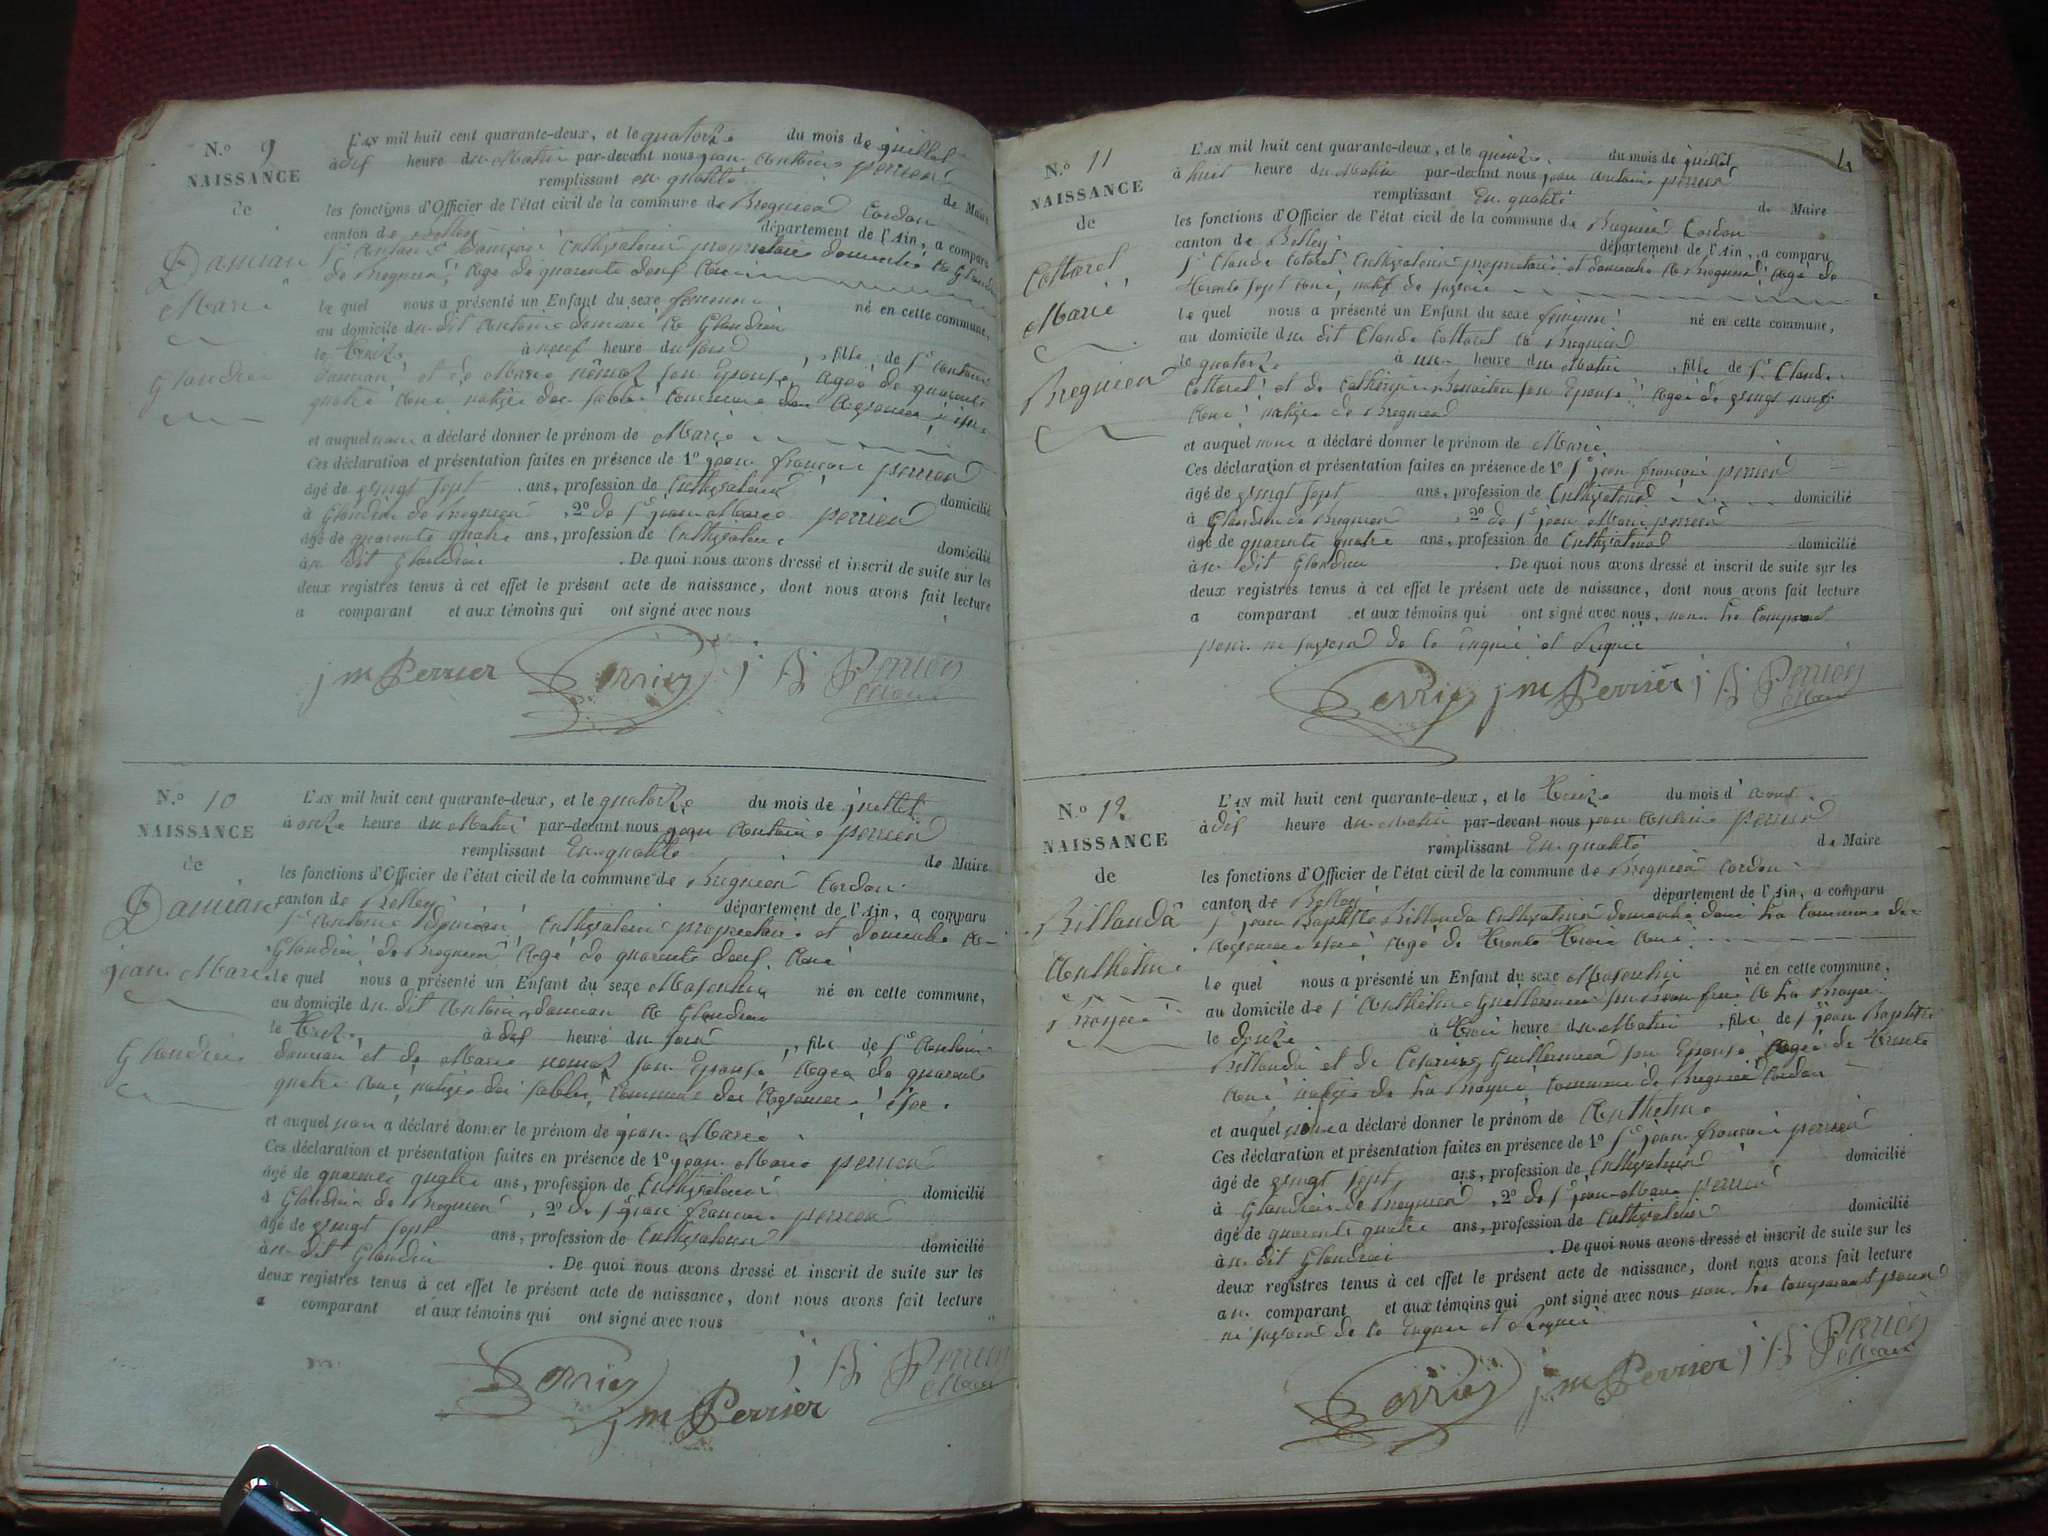 N.º 9
NAISSANCE
de
Damian
Marie
Glandieu
L'AN mil huit cent quarante-deux, et le quatorze du mois de juillet
à dix heure du Matin par-devant nous jean Antoine perrier
remplissant en qualité de Maire
les fonctions d'Officier de l'état civil de la commune de Bregnier Cordon
canton de Belley département de l'Ain, a comparu
Sr Antoine Damian Cultivateur propriétaire domicilié à Glandieu
de Bregnier, agé de quarante deux ans
le quel nous a présenté un Enfant du sexe féminin né en cette commune,
au domicile du dit Antoine damian à Glandieu
le treize à neuf heure du soir, fille de Sr Antoine
damian et de Marie son Epouse, agée de quarante
quatre ans native des sables Commune des isère
et auquel nous a déclaré donner le prénom de Marie
Ces déclaration et présentation faites en présence de 1º jean françois perrier
âgé de vingt sept ans, profession de Cultivateur domicilié
à Glandieu de Bregnier, 2º de Sr jean Marie perrier
âgé de quarante quatre ans, profession de Cultivateur domicilié
au dit Glandieu. De quoi nous avons dressé et inscrit de suite sur les
deux registres tenus à cet effet le présent acte de naissance, dont nous avons fait lecture
a comparant et aux témoins qui ont signé avec nous
j m Perrier Perrier j A Perrier
Maire
N.º 10
NAISSANCE
de
Damian
jean Marie
Glandieu
L'AN mil huit cent quarante-deux, et le quatorze du mois de juillet
à onze heure du Matin par-devant nous jean Antoine perrier
remplissant En qualité de Maire
les fonctions d'Officier de l'état civil de la commune de Bregnier Cordon
canton de Belley département de l'Ain, a comparu
Sr Antoine Damian Cultivateur propriétaire et domicilié à
Glandieu de Bregnier agé de quarante deux ans
le quel nous a présenté un Enfant du sexe Masculin né en cette commune,
au domicile du dit Antoine damian à Glandieu
le treize à dix heure du soir, fils de Sr Antoine
damian et de Marie son Epouse agée de quarante
quatre ans, native des sables, Commune des isère
et auquel nous a déclaré donner le prénom de jean Marie
Ces déclaration et présentation faites en présence de 1º jean Marie perrier
âgé de quarante quatre ans, profession de Cultivateur domicilié
à Glandieu de Bregnier, 2º de Sr jean françois perrier
âgé de vingt sept ans, profession de Cultivateur domicilié
au dit Glandieu. De quoi nous avons dressé et inscrit de suite sur les
deux registres tenus à cet effet le présent acte de naissance, dont nous avons fait lecture
a comparant et aux témoins qui ont signé avec nous
Perrier j A Perrier
Maire
j m Perrier
4
N.º 11
NAISSANCE
de
Cottarel
Marie
Bregnier
L'AN mil huit cent quarante-deux, et le quinze du mois de juillet
à huit heure du Matin par-devant nous jean Antoine perrier
remplissant En qualité de Maire
les fonctions d'Officier de l'état civil de la commune de Bregnier Cordon
canton de Belley département de l'Ain, a comparu
Sr Claude Cotarel Cultivateur propriétaire et domicilié à Bregnier agé de
trente sept ans, natif de
le quel nous a présenté un Enfant du sexe féminin né en cette commune,
au domicile du dit Claude Cottarel à Bregnier
le quatorze à une heure du Matin, fille de Sr Claude
Cottarel et de Catherine son Epouse agée de vingt neuf
ans native de Bregnier
et auquel nous a déclaré donner le prénom de Marie
Ces déclaration et présentation faites en présence de 1º Sr jean françois perrier
âgé de vingt sept ans, profession de Cultivateur domicilié
à Glandieu de Bregnier, 2º de Sr jean Marie perrier
âgé de quarante quatre ans, profession de Cultivateur domicilié
au dit Glandieu. De quoi nous avons dressé et inscrit de suite sur les
deux registres tenus à cet effet le présent acte de naissance, dont nous avons fait lecture
a comparant et aux témoins qui ont signé avec nous, non le Comparant
pour ne savoir de ce enquis et requis
Perrier j m Perrier j A Perrier
Maire
N.º 12
NAISSANCE
de
Billanda
Anthelme
L'AN mil huit cent quarante-deux, et le treize du mois d'août
à dix heure du Matin par-devant nous jean Antoine perrier
remplissant En qualité de Maire
les fonctions d'Officier de l'état civil de la commune de Bregnier Cordon
canton de Belley département de l'Ain, a comparu
Sr jean Baptiste Billanda Cultivateur domicilié dans la Commune des
isère agé de trente trois ans
le quel nous a présenté un Enfant du sexe Masculin né en cette commune,
au domicile de Sr Anthelme Guillermier à la
le douze à trois heure du Matin, fils de Sr jean Baptiste
Billanda et de Guillermier son Epouse agée de trente
ans native de la Commune de Bregnier Cordon
et auquel nous a déclaré donner le prénom de Anthelme
Ces déclaration et présentation faites en présence de 1º Sr jean françois perrier
âgé de vingt sept ans, profession de Cultivateur domicilié
à Glandieu de Bregnier, 2º de Sr jean Marie perrier
âgé de quarante quatre ans, profession de Cultivateur domicilié
au dit Glandieu. De quoi nous avons dressé et inscrit de suite sur les
deux registres tenus à cet effet le présent acte de naissance, dont nous avons fait lecture
au comparant et aux témoins qui ont signé avec nous non le comparant pour
ne savoir de ce enquis et requis
Perrier j m Perrier j A Perrier
Maire